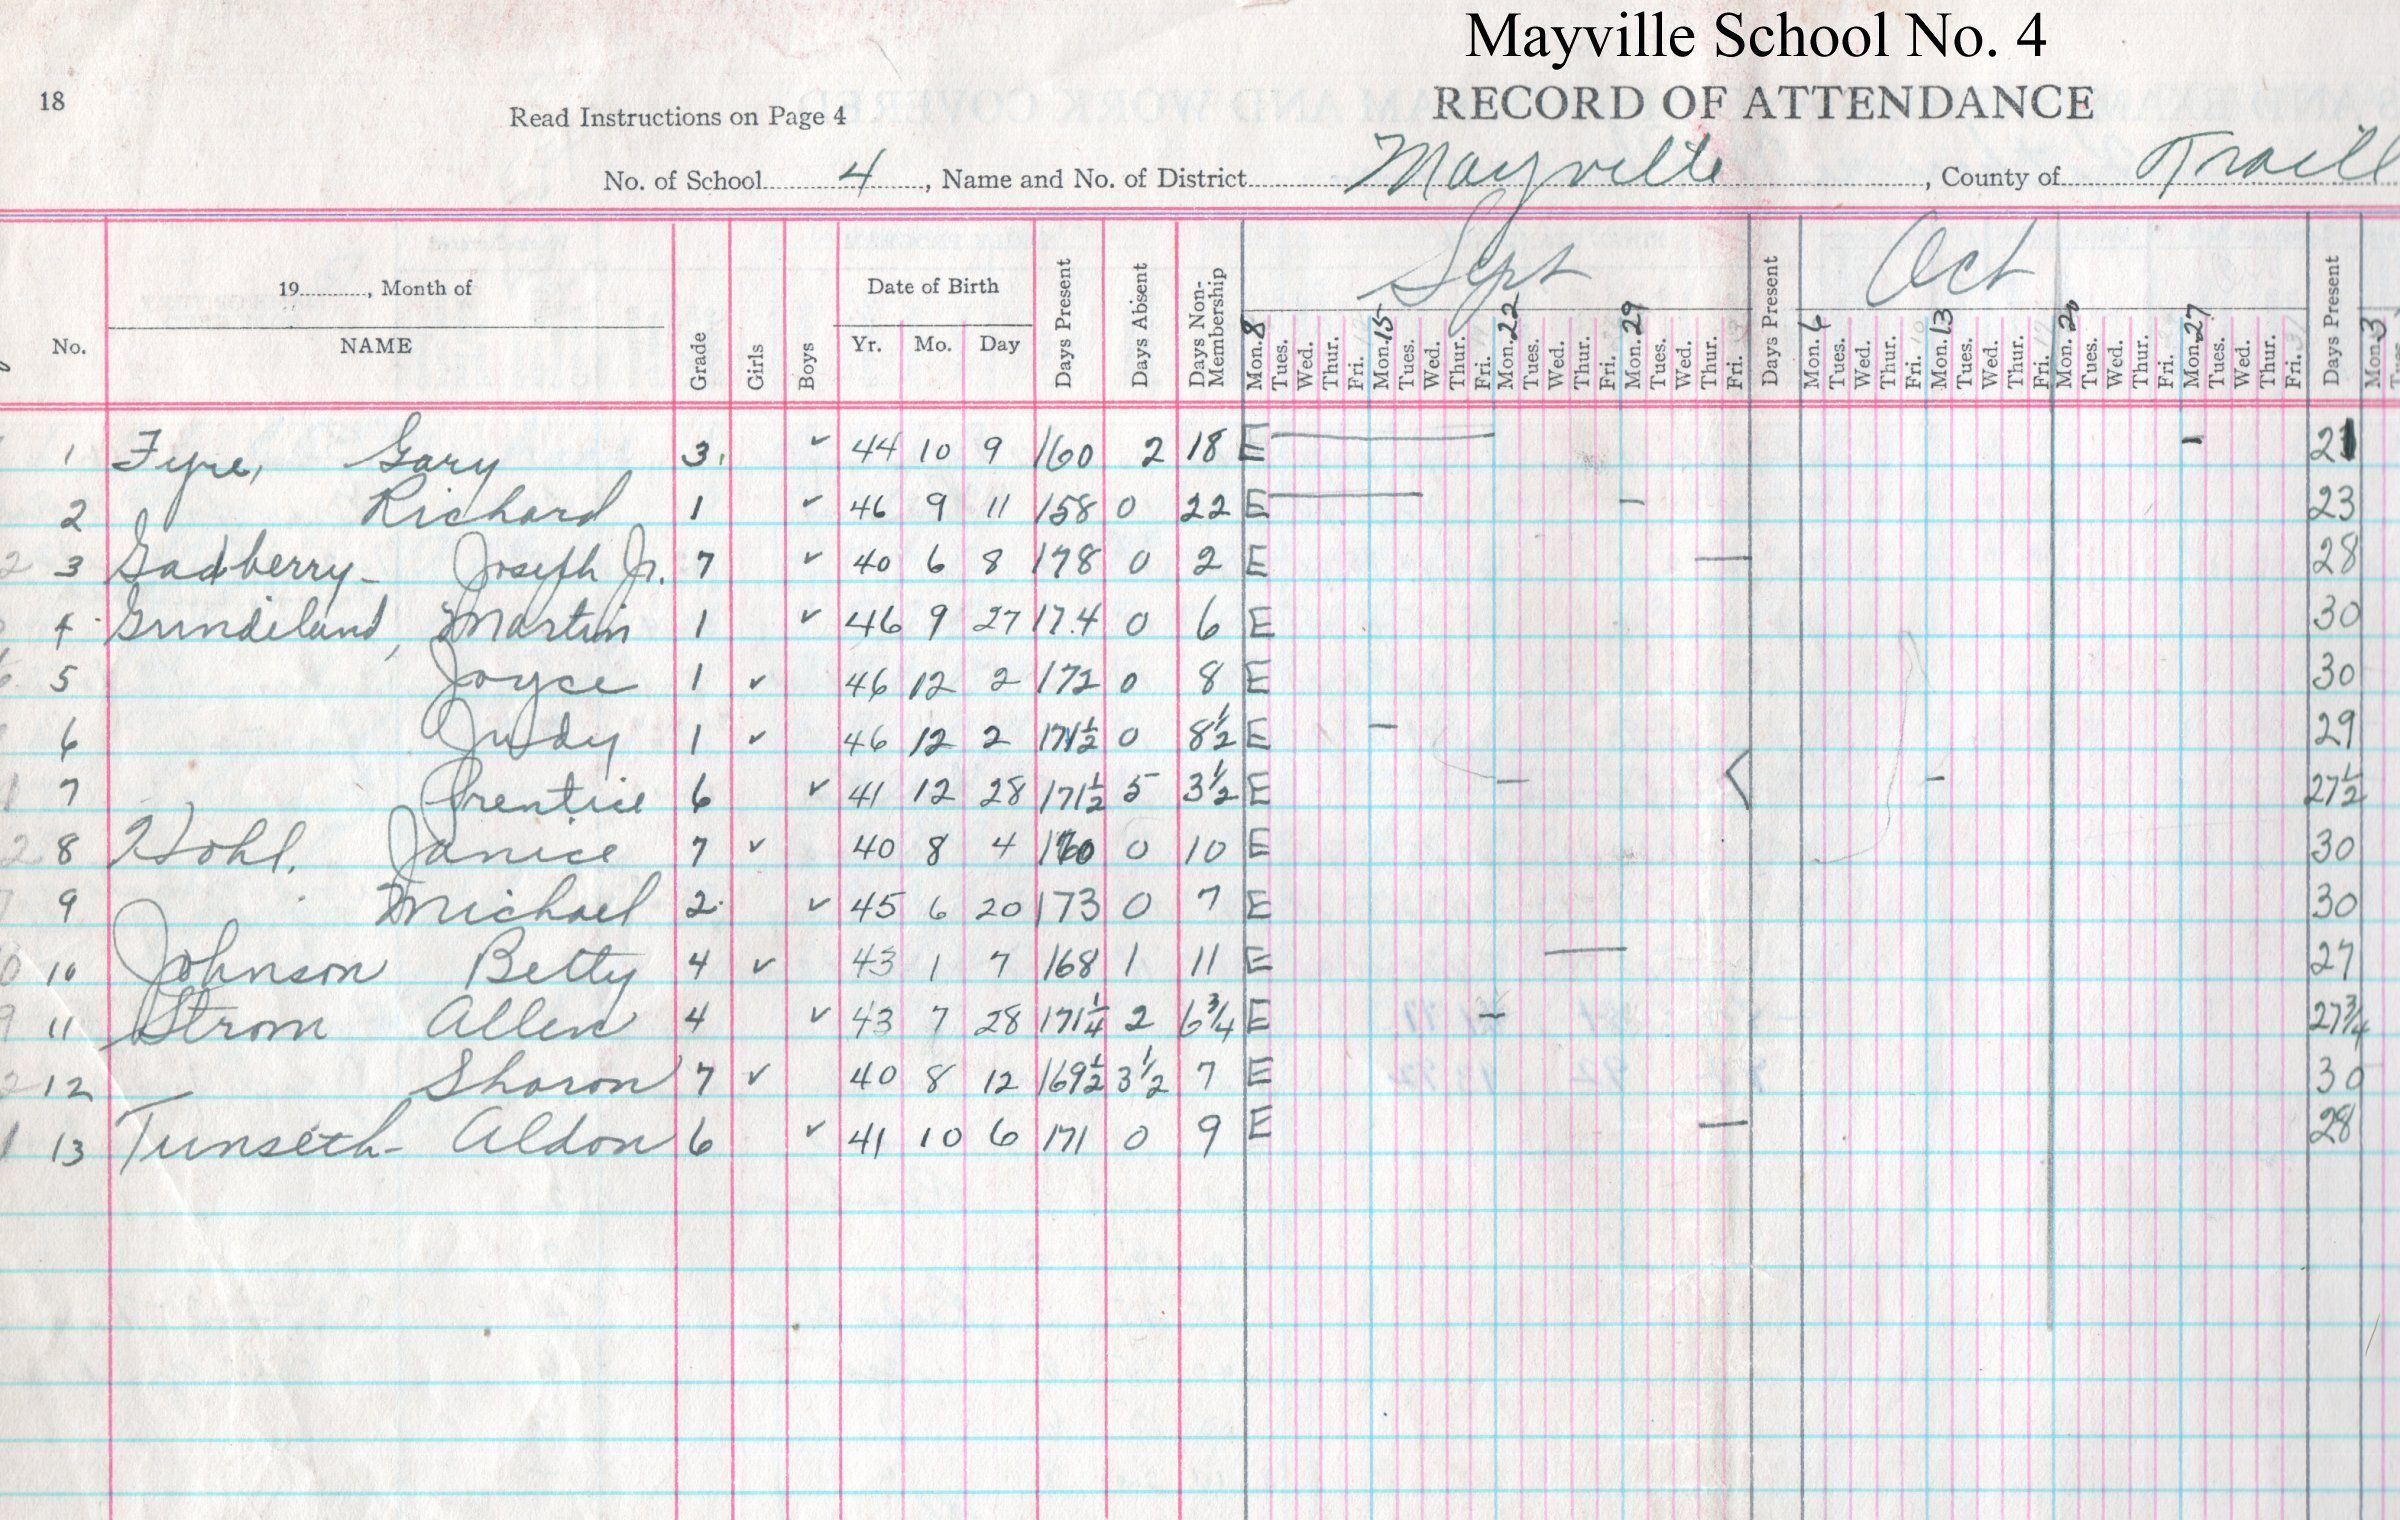 Mayville School No. 4
18
Read Instructions on Page 4
RECORD OF ATTENDANCE
No. of School 4, Name and No. of District Mayville, County of Traill
Sept Oct
19, Month of Date of Birth
No. NAME Grade Girls Boys Yr. Mo. Day Days Present Days Absent Days Non-Membership Mon. 8 Tues. Wed. Thur. Fri. Mon. 15 Tues. Wed. Thur. Fri. Mon. 22 Tues. Wed. Thur. Fri. Mon. 29 Tues. Wed. Thur. Fri. Days Present Mon. 6 Tues. Wed. Thur. Fri. Mon. 13 Tues. Wed. Thur. Fri. Mon. 20 Tues. Wed. Thur. Fri. Mon. 27 Tues. Wed. Thur. Fri. Days Present Mon. 3
1 Fyre, Gary 3 ✓ 44 10 9 160 2 18 E — - 21
2 Richard 1 ✓ 46 9 11 158 0 22 E — - 23
3 Gadberry - Joseph Jr. 7 ✓ 40 6 8 178 0 2 E — 28
4 Grindeland, Martin 1 ✓ 46 9 27 174 0 6 E 30
5 Joyce 1 ✓ 46 12 2 172 0 8 E 30
6 Judy 1 ✓ 46 12 2 171½ 0 8½ E - 29
7 Prentice 6 ✓ 41 12 28 171½ 5 3½ E - < - 27½
8 Hohl, Janice 7 ✓ 40 8 4 170 0 10 E 30
9 Michael 2 ✓ 45 6 20 173 0 7 E 30
10 Johnson Betty 4 ✓ 43 1 7 168 1 11 E — 27
11 Strom Allen 4 ✓ 43 7 28 171¼ 2 6¾ E - 27¾
12 Sharon 7 ✓ 40 8 12 169½ 3½ 7 E 30
13 Tunseth - Aldon 6 ✓ 41 10 6 171 0 9 E — 28